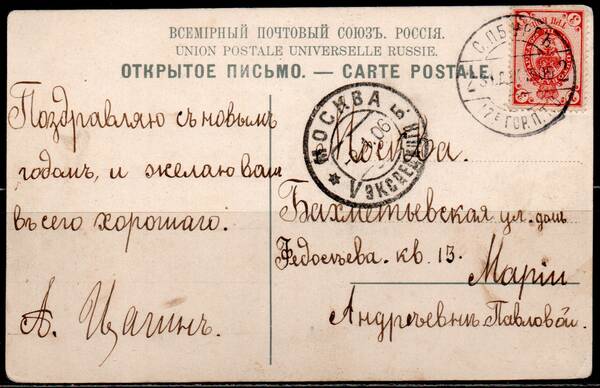 ВСЕМІРНЫЙ ПОЧТОВЫЙ СОЮЗЪ. РОССІЯ.
UNION POSTALE UNIVERSELLE RUSSIE.
ОТКРЫТОЕ ПИСЬМО. — CARTE POSTALE.
Поздравляю съ новымъ
годомъ, и желаю вамъ
въсего хорошаго.
А. Цагинъ.
Москва.
Бахметьевская ул. домъ
Федосѣева. кв. 13.
Маріи
Андрѣевнѣ Павловой.
МОСКВА
V ЭКСПЕДИЦ
06
С.П.Б.
ГОР. П.Т.
3